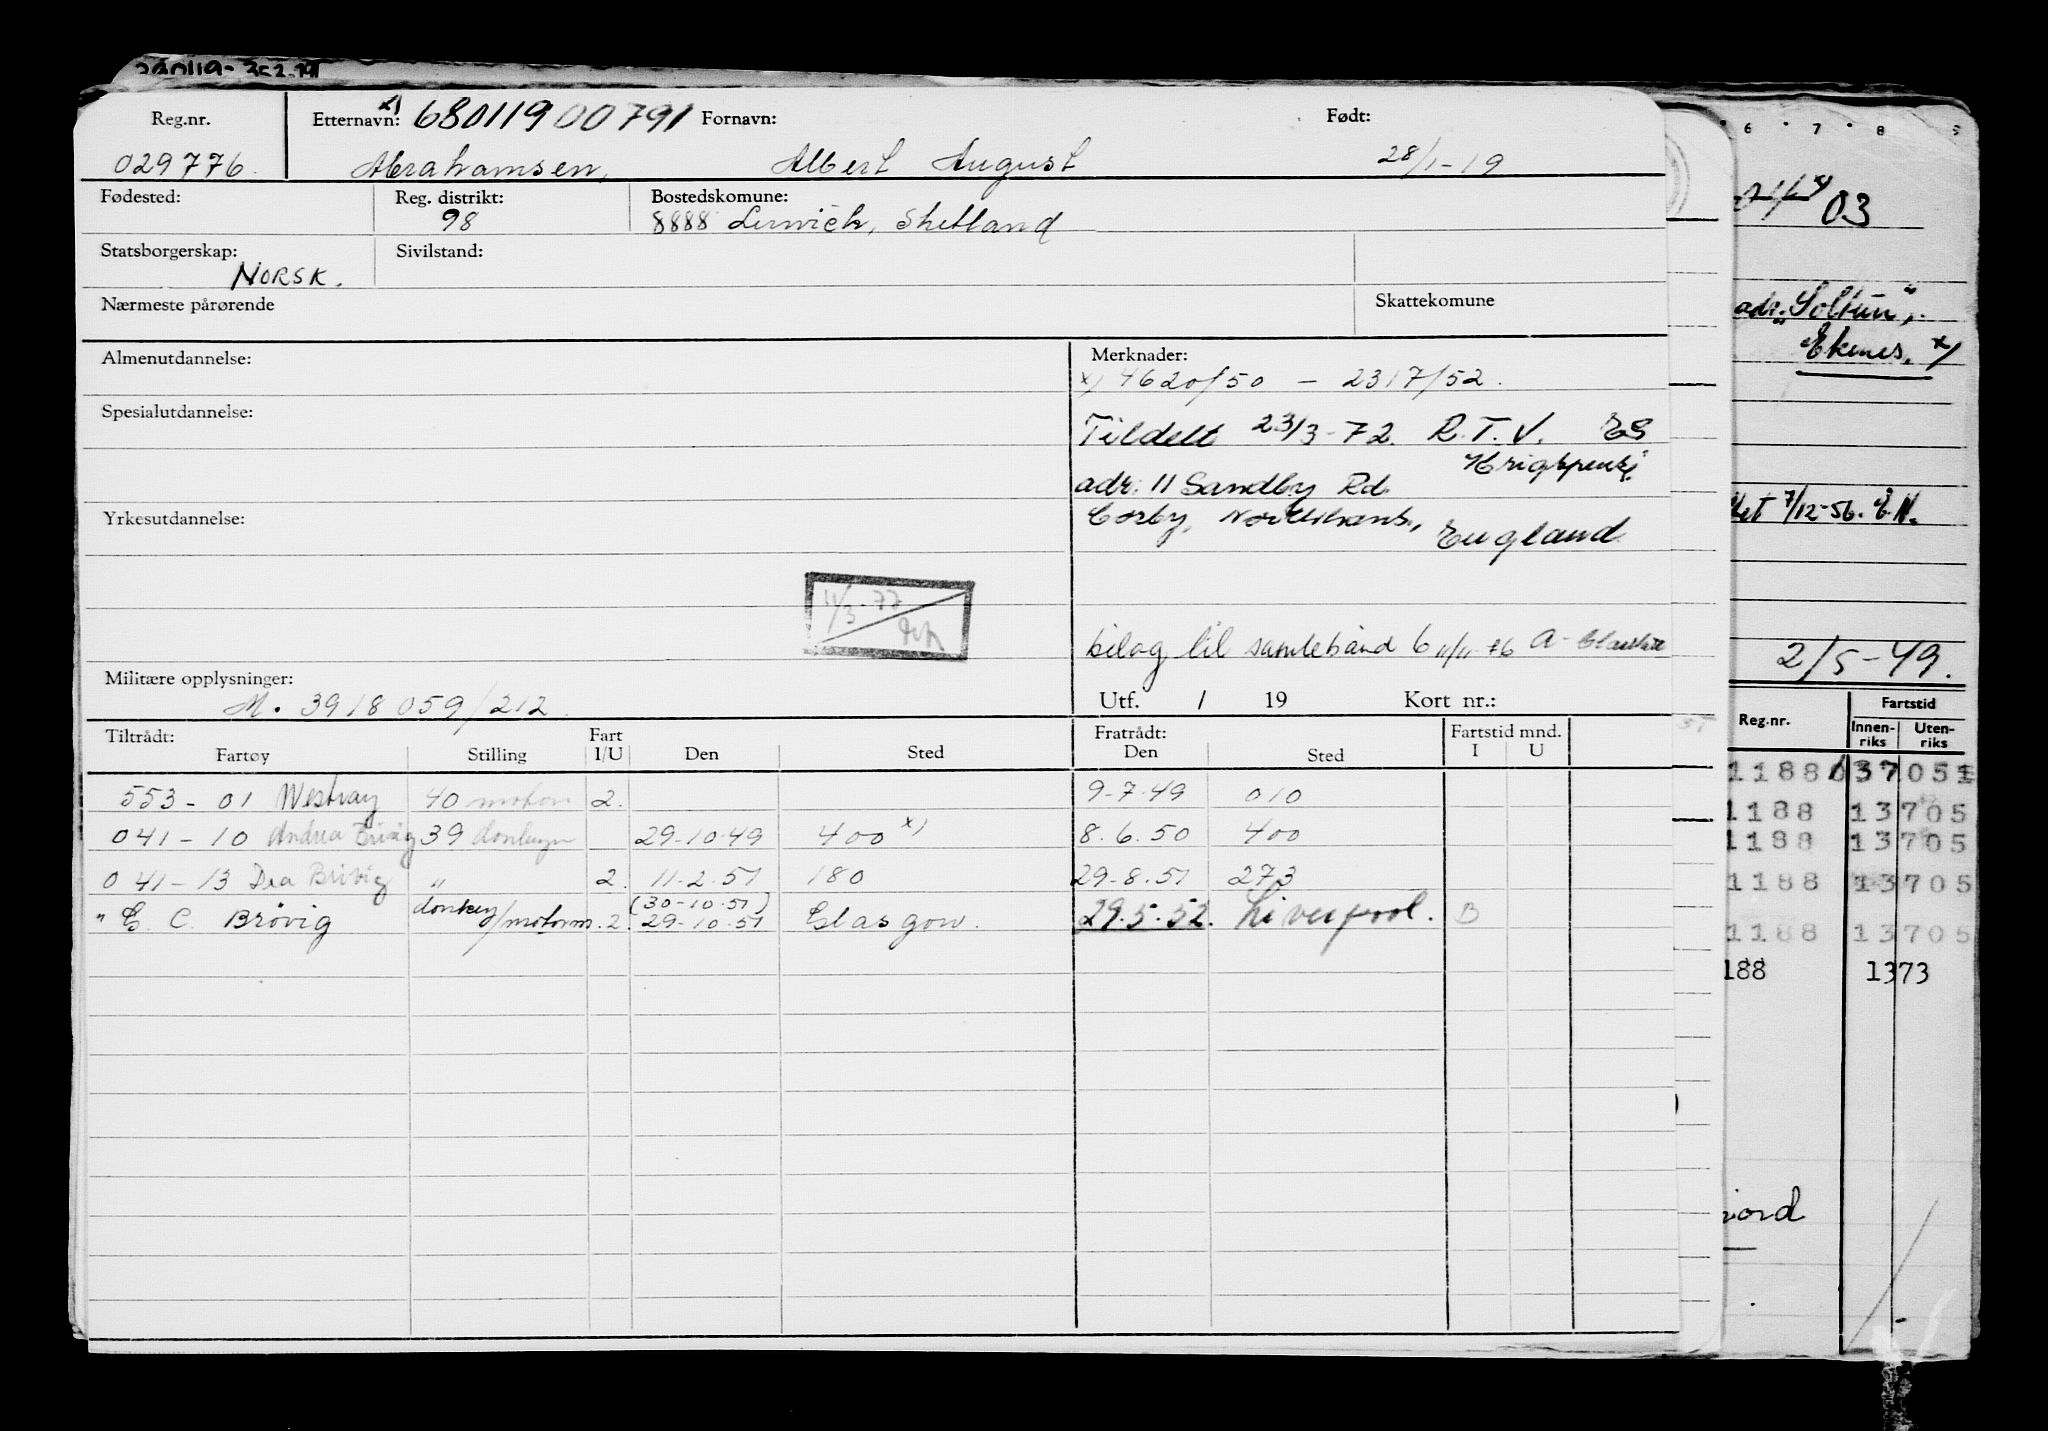 Reg.nr. Etternavn: x) 68011900791 Fornavn: Født:
029776. Abrahamsen, Albert August 28/1-19
Fødested: Reg. distrikt: Bostedskomune:
98 8888 Lerwick, Shetland
Statsborgerskap: Sivilstand:
NORSK.
Nærmeste pårørende Skattekomune
Almenutdannelse: Merknader:
x) 4620/50 - 2317/52.
Spesialutdannelse:
Tildelt 23/3-72. R.T.V.
Krigspensj.
adr: 11 Sandby Rd
Yrkesutdannelse:
Corby, England
11/3-77
bilag til samlebånd 6 11/11-76 A-
Militære opplysninger:
M. 3918059/212
Utf. / 19 Kort nr.:
Tiltrådt: Fart Fratrådt: Fartstid mnd.
Fartøy Stilling I/U Den Sted Den Sted I U
553-01 Westray 40 motorm 2. 9-7-49 010
041-10 Andrea Brøvig 39 29-10-49 400 x) 8.6.50 400
041-13 Dea Brøvig " 2. 11-2-51 180 29-8-51 273
(30-10-51)
" G. C. Brøvig donkey/motorm. 2. 29-10-51 Glasgow. 29.5.52. Liverpool. B
6 7 8
03
adr. "Soltun",
Ekenes. x)
7/12-56.
2/5-49.
Reg.nr. Fartstid
Innen-riks Uten-riks
1188 137051
1188 13705
1188 13705
1188 13705
1188 13705
188 1373